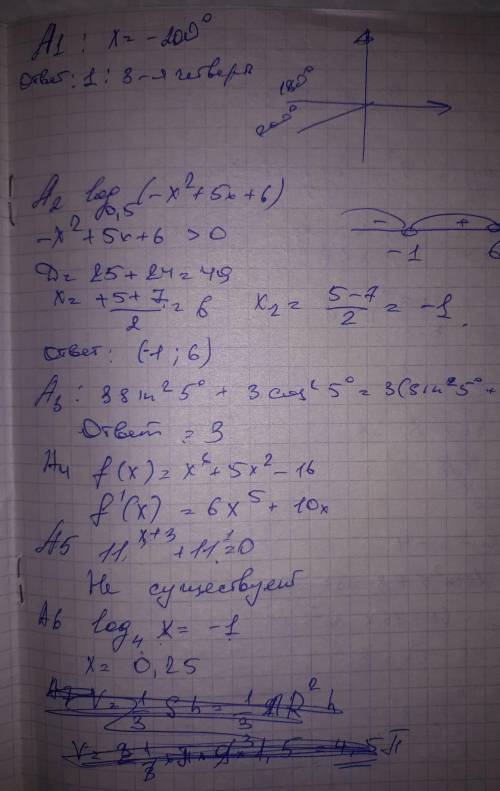 A1 : x = -200°
Ответ: 1 : 3-я четверть
180°
200°
A2 log₀,₅ (-x² + 5x + 6)
-x² + 5x + 6 > 0
- +
-1 6
D = 25 + 24 = 49
x = +5+7/2 = 6 x₂ = 5-7/2 = -1
ответ: (-1 ; 6)
A3 : 3 sin² 5° + 3 cos² 5° = 3(sin² 5° +
Ответ = 3
A4 f(x) = x⁶ + 5x² - 16
f'(x) = 6x⁵ + 10x
A5 11ˣ⁺³ + 11 = 0
Не существует
A6 log₄ x = -1
x = 0,25
A7 V = 1/3 Sh = 1/3 πR² h